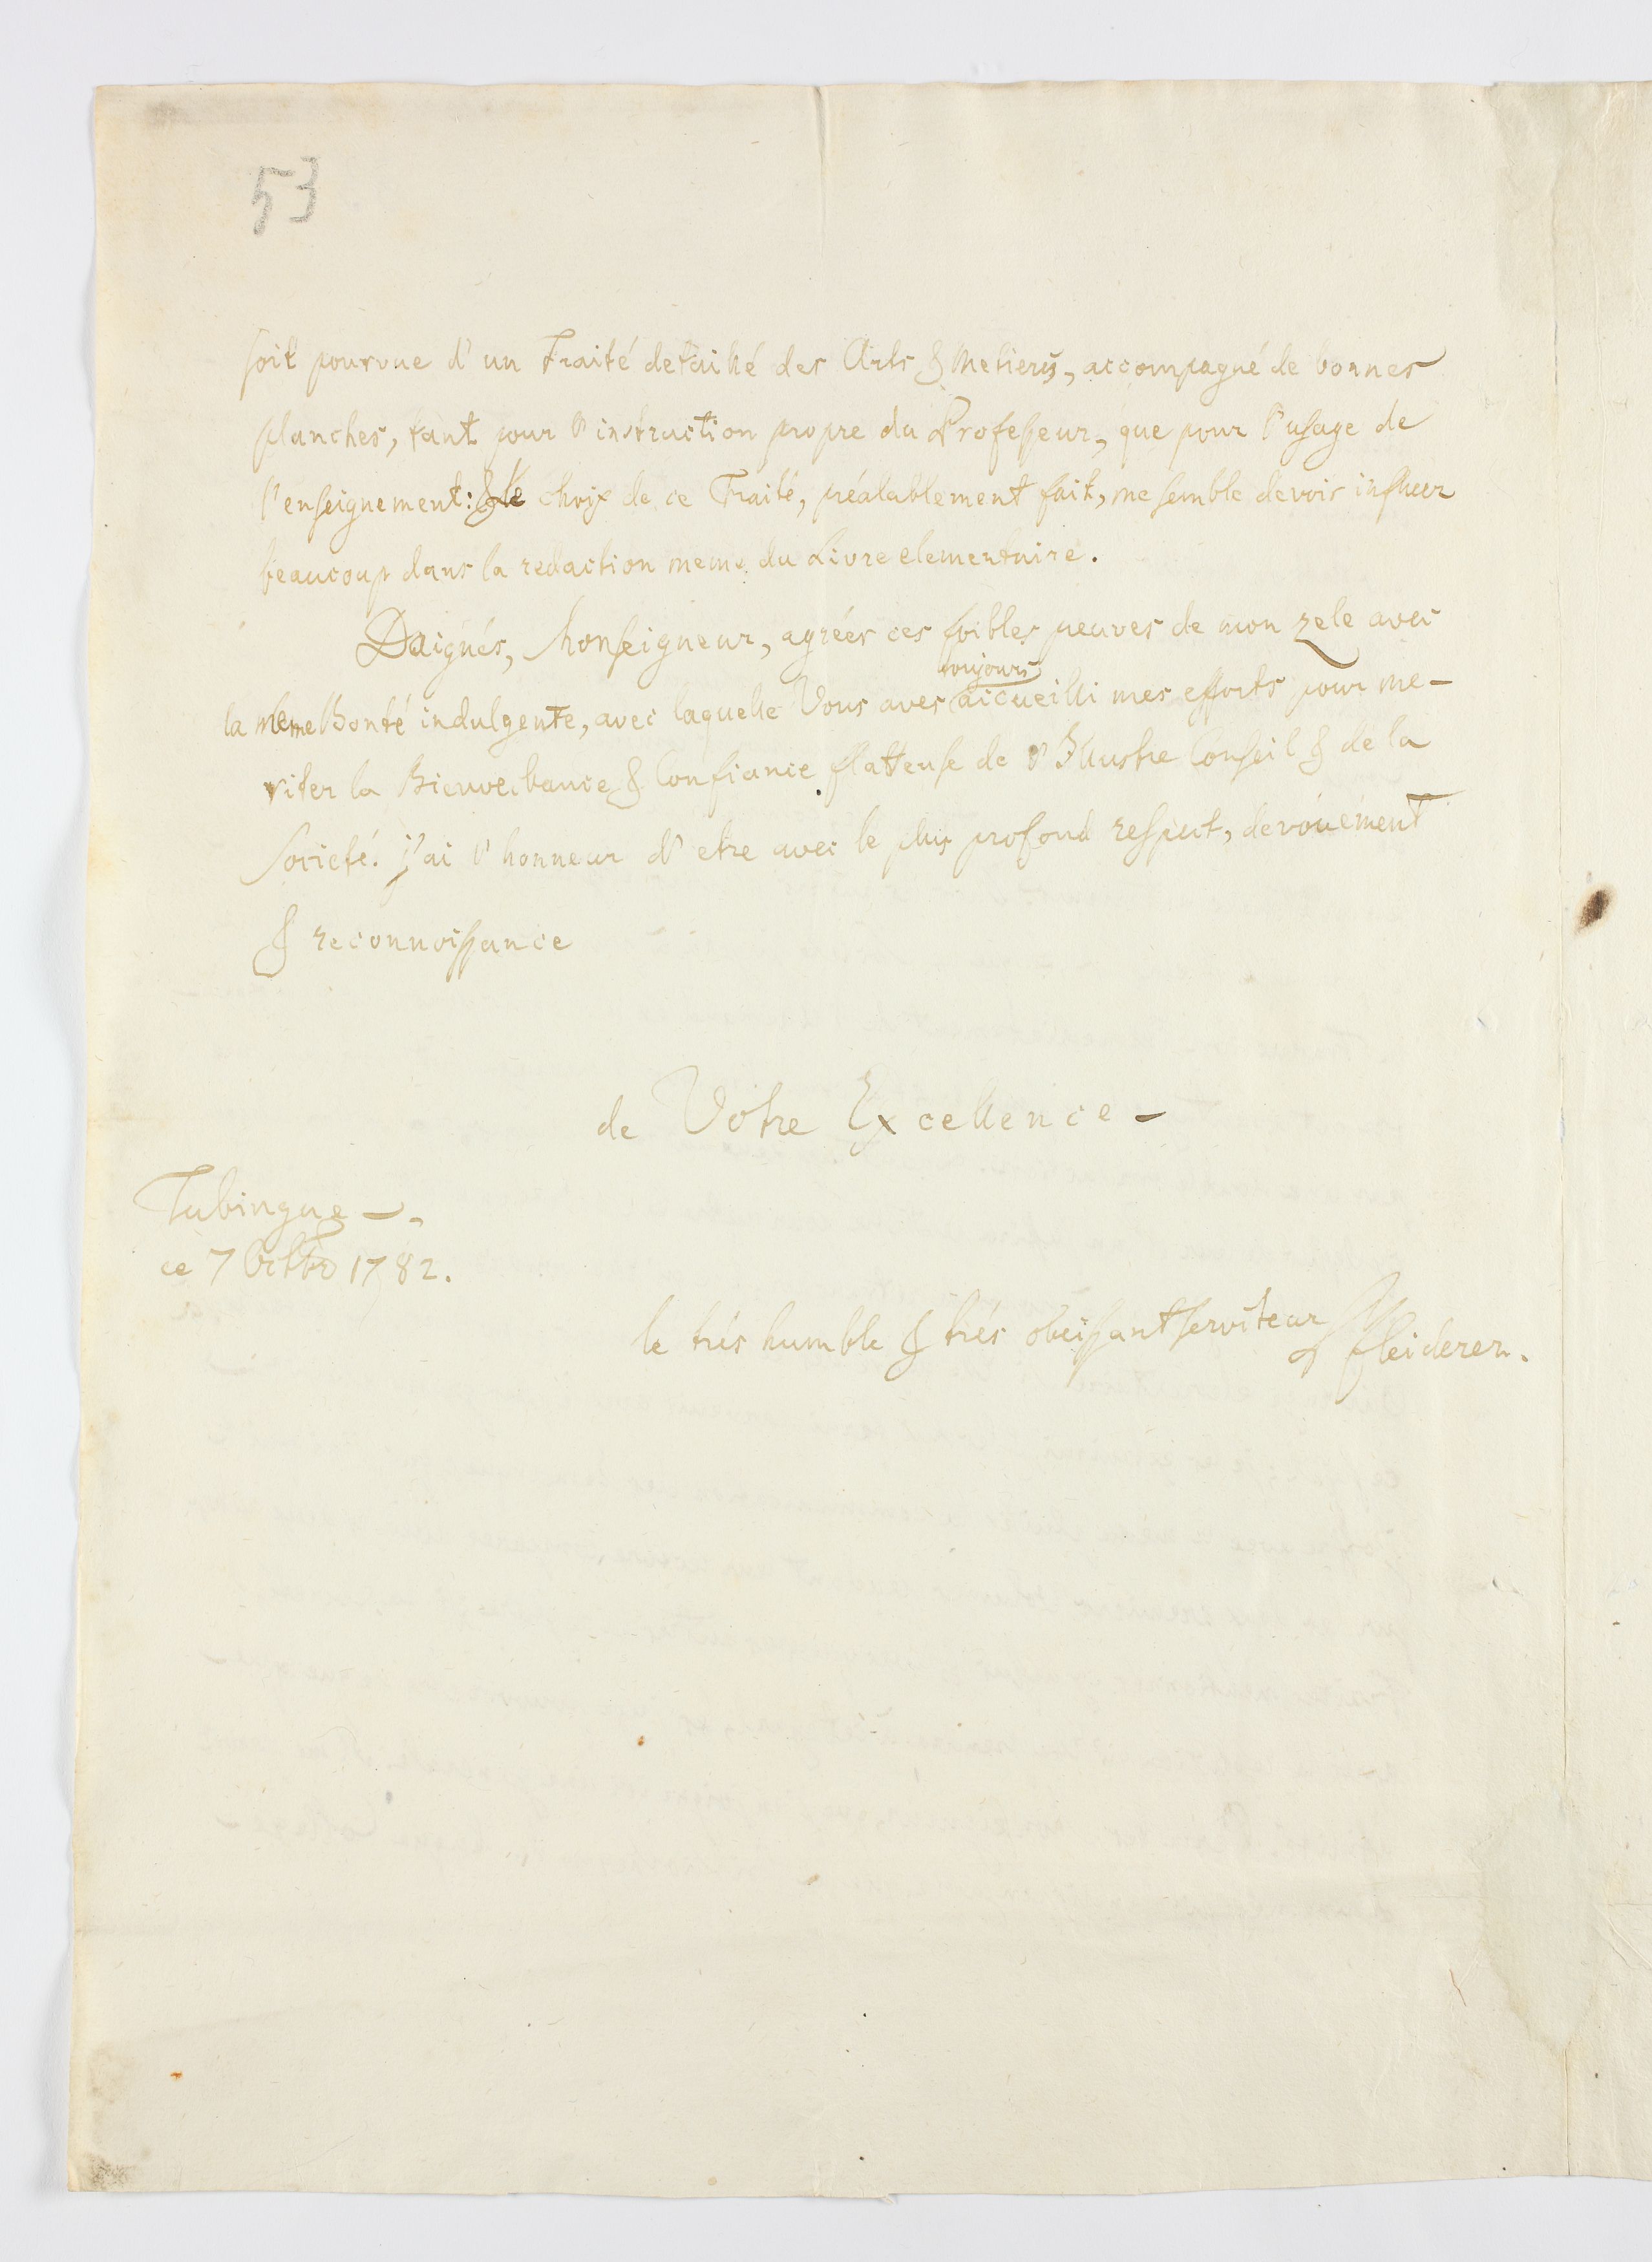 53
soit pourvue d'un Traité detaillé des Arts & Metiers, accompagné de bonnes
planches, tant pour l'instruction propre du Professeur, que pour l'usage de
l'enseignement: & le choix de ce Traité, préalablement fait, me semble devoir influer
beaucoup dans la redaction meme du Livre elementaire.
Daignés, Monseigneur, agréer ces foibles preuves de mon zele avec
toujours
la meme Bonté indulgente, avec laquelle Vous aves accueilli mes efforts pour me-
riter la Bienveillance & Confiance flatteuse de l'Illustre Conseil & de la
Societé. j'ai l'honneur d'etre avec le plus profond respect, devouement
& reconnoissance
de Votre Excellence
Tubingue
ce 7 Octbr 1782.
le trés humble & trés obeissant serviteur Pfleiderer.